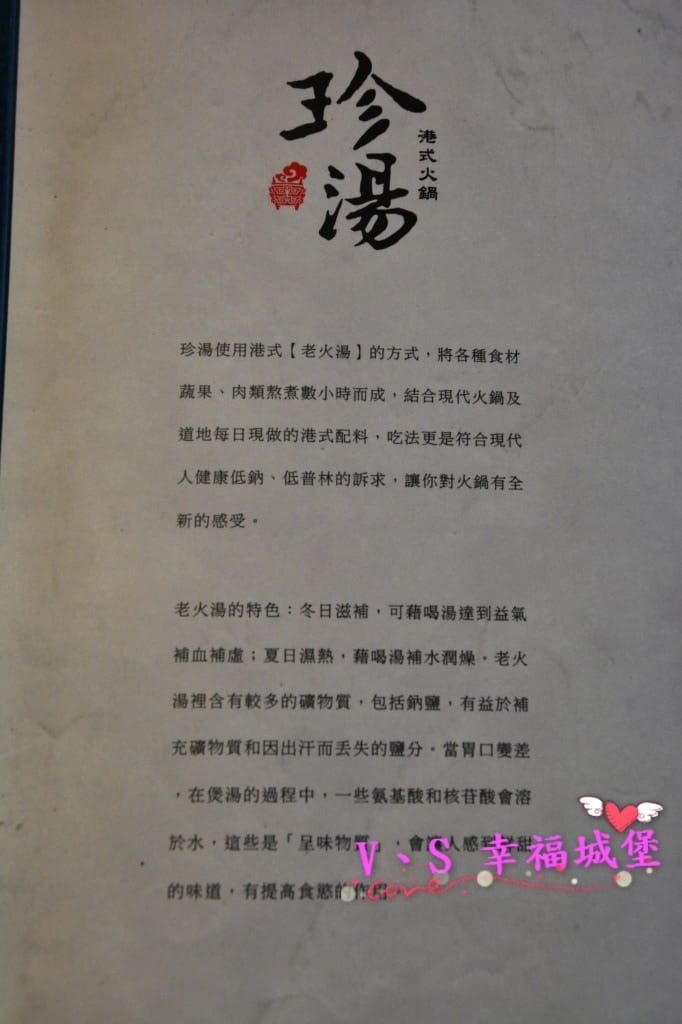 珍湯
港式火鍋
珍湯使用港式【老火湯】的方式，將各種食材
蔬果、肉類熬煮數小時而成，結合現代火鍋及
道地每日現做的港式配料，吃法更是符合現代
人健康低鈉、低普林的訴求，讓你對火鍋有全
新的感受。
老火湯的特色：冬日滋補，可藉喝湯達到益氣
補血補虛；夏日濕熱，藉喝湯補水潤燥。老火
湯裡含有較多的礦物質，包括鈉鹽，有益於補
充礦物質和因出汗而丟失的鹽分。當胃口變差
，在煲湯的過程中，一些氨基酸和核苷酸會溶
於水，這些是「呈味物質」，會 人感到 甜
的味道，有提高食慾的作
V、S 幸福城堡
Love